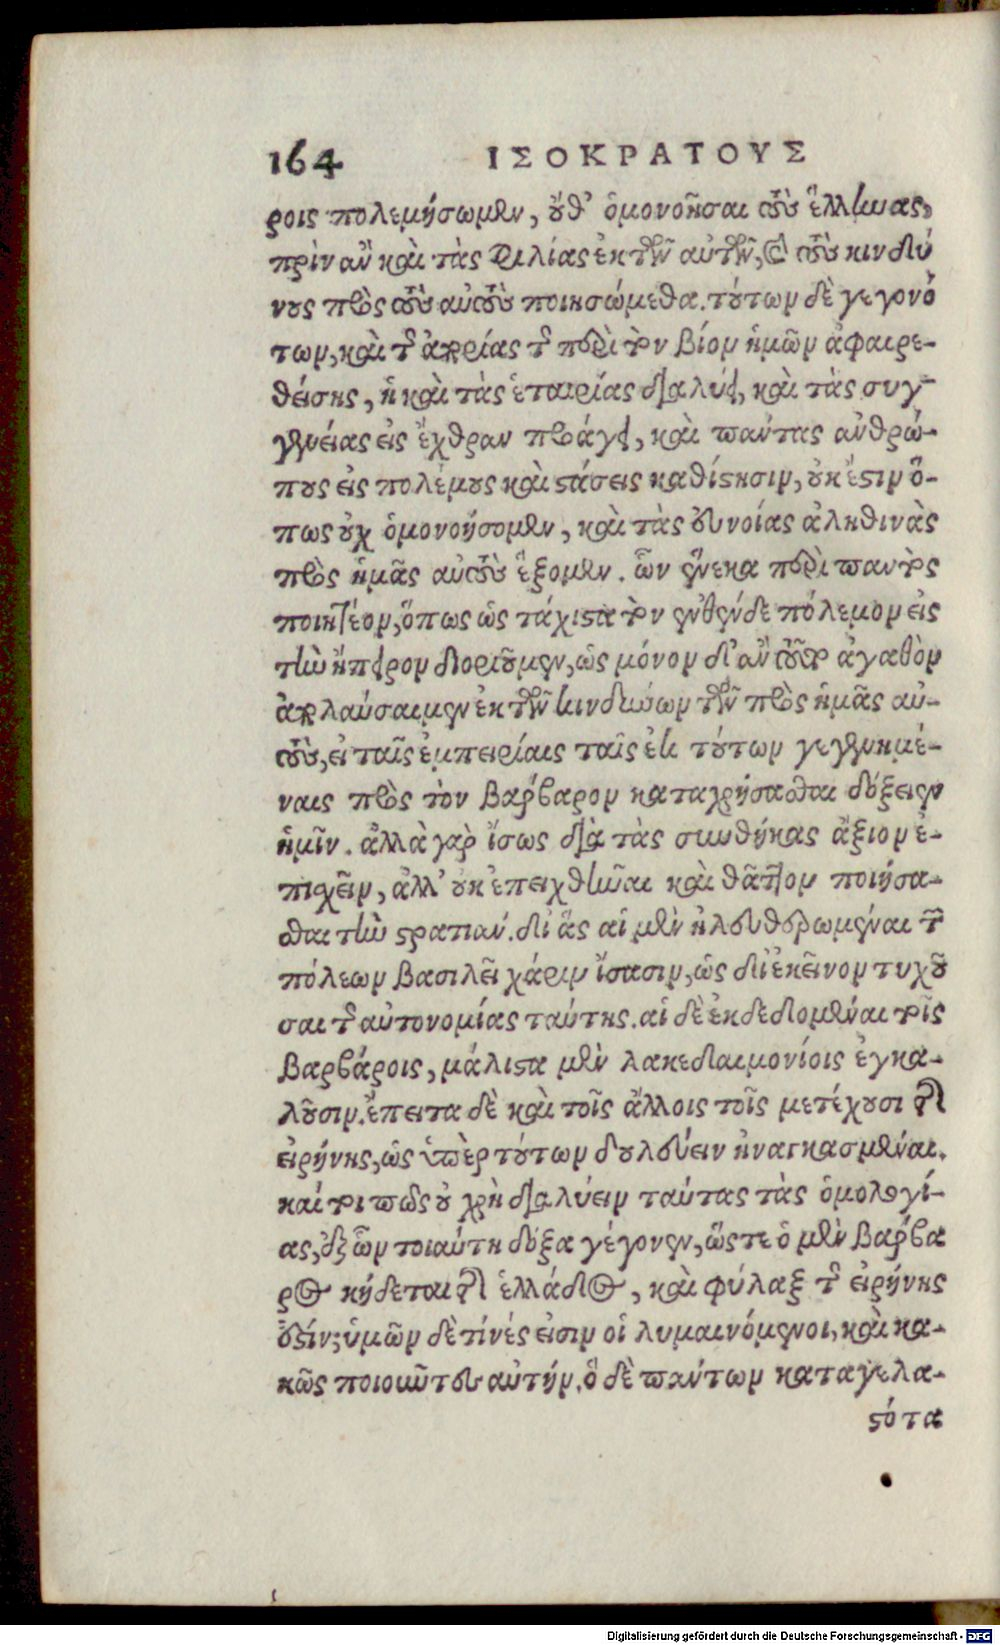 164 ΙΣΟΚΡΑΤΟΥΣ
ροις πολεμήσωμεν, οὔθ' ὁμονοῆσαι τοὺς ἕλληνας,
πρὶν ἂν καὶ τὰς φιλίας ἐκ τῶν αὐτῶν, καὶ τοὺς κινδύ
νους πρὸς τοὺς αὐτοὺς ποιησώμεθα. τούτων δὲ γεγονό
των, καὶ τῆς ἀπορίας τῆς περὶ τὸν βίον ἡμῶν ἀφαιρε-
θείσης, ἣ καὶ τὰς ἑταιρίας διαλύει, καὶ τὰς συγ-
γενείας εἰς ἔχθραν προάγει, καὶ πάντας ἀνθρώ-
πους εἰς πολέμους καὶ στάσεις καθίστησιν, οὐκ ἔστιν ὅ-
πως οὐχ ὁμονοήσομεν, καὶ τὰς εὐνοίας ἀληθινὰς
πρὸς ἡμᾶς αὐτοὺς ἕξομεν. ὧν ἕνεκα περὶ παντὸς
ποιητέον, ὅπως ὡς τάχιστα τὸν ἐνθένδε πόλεμον εἰς
τὴν ἤπειρον διοριοῦμεν, ὡς μόνον δι' ἂν τοῦτο ἀγαθὸν
ἀπολαύσαιμεν ἐκ τῶν κινδύνων τῶν πρὸς ἡμᾶς αὐ-
τοὺς, εἰ ταῖς ἐμπειρίαις ταῖς ἐκ τούτων γεγενημέ-
ναις πρὸς τὸν βάρβαρον καταχρήσασθαι δόξειεν
ἡμῖν. ἀλλὰ γὰρ ἴσως διὰ τὰς συνθήκας ἄξιον ἐ-
πισχεῖν, ἀλλ' οὐκ ἐπειχθῆναι καὶ θᾶττον ποιήσα-
σθαι τὴν στρατιάν. δι' ἃς αἱ μὲν ἠλευθερωμέναι τῶν
πόλεων βασιλεῖ χάριν ἴσασιν, ὡς δι' ἐκεῖνον τυχοῦ
σαι τῆς αὐτονομίας ταύτης. αἱ δὲ ἐκδεδομέναι τοῖς
βαρβάροις, μάλιστα μὲν λακεδαιμονίοις ἐγκα-
λοῦσιν. ἔπειτα δὲ καὶ τοῖς ἄλλοις τοῖς μετέχουσι τῆς
εἰρήνης, ὡς ὑπὲρ τούτων δουλεύειν ἠναγκασμέναι.
καίτοι πῶς οὐ χρὴ διαλύειν ταύτας τὰς ὁμολογί-
ας, ἐξ ὧν τοιαύτη δόξα γέγονεν, ὥστε ὁ μὲν βάρβα
ρος κήδεται τῆς ἑλλάδος, καὶ φύλαξ τῆς εἰρήνης
ἐστίν; ὑμῶν δὲ τινές εἰσιν οἱ λυμαινόμενοι, καὶ κα-
κῶς ποιοῦντες αὐτήν. ὃ δὲ πάντων καταγελα-
στότα
Digitalisierung gefördert durch die Deutsche Forschungsgemeinschaft - DFG